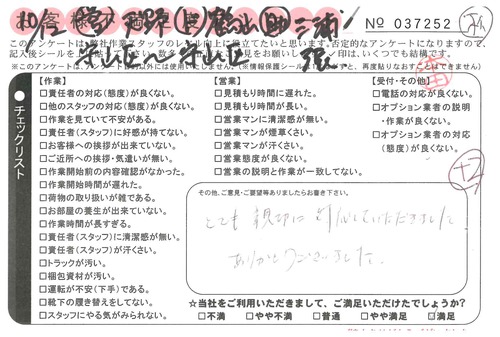 No 037252
このアンケートは弊社作業スタッフのレベル向上に役立てたいと思います。否定的なアンケートになりますので、
【作業】
□責任者の対応(態度)が良くない。
□他のスタッフの対応(態度)が良くない。
□作業を見ていて不安がある。
□責任者(スタッフ)に好感が持てない。
□お客様への挨拶が出来ていない。
□ご近所への挨拶・気遣いが無い。
□作業開始前の内容確認がなかった。
□作業開始時間が遅れた。
□荷物の取り扱いが雑である。
□お部屋の養生が出来ていない。
□作業時間が長すぎる。
□責任者(スタッフ)に清潔感が無い。
□責任者(スタッフ)が汗くさい。
□トラックが汚い。
□梱包資材が汚い。
□運転が不安(下手)である。
□靴下の履き替えをしない。
□スタッフにやる気がみられない。
【営業】
□見積もり時間に遅れた。
□見積もり時間が長い。
□営業マンに清潔感が無い。
□営業マンが煙草くさい。
□営業マンが汗くさい。
□営業態度が良くない。
□営業の説明と作業が一致してない。
【受付・その他】
□電話の対応が良くない。
□オプション業者の説明
・作業が良くない。
□オプション業者の対応
(態度)が良くない。
チェックリスト
その他、ご意見・ご要望等ありましたらお書き下さい。
とても親切に対応していただきました
ありがとうございました。
☆当社をご利用いただきまして、ご満足いただけたでしょうか?
□不満 □やや不満 □普通 □やや満足 ☑満足